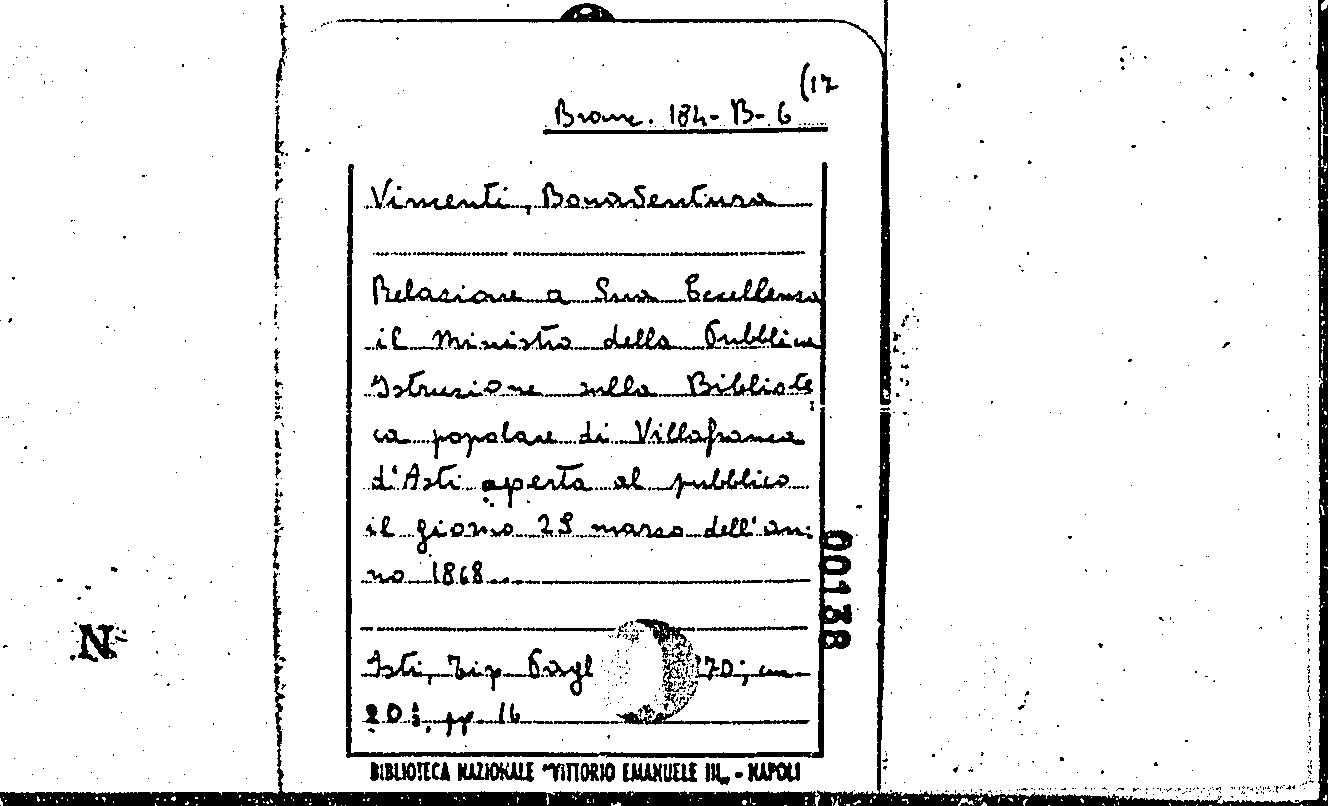 (17
Branc. 184-B-6
Vincenti, Bonaventura
Relazione a Sua Eccellenza
il Ministro della Pubblica
Istruzione sulla Bibliote
ca popolare di Villafranca
d'Asti aperta al pubblico
il giorno 25 marzo dell'an:
no 1868...
Asti, Tip. Pagl 70; cm
20½, pp. 16
BIBLIOTECA NAZIONALE "VITTORIO EMANUELE III„ - NAPOLI
00138
N